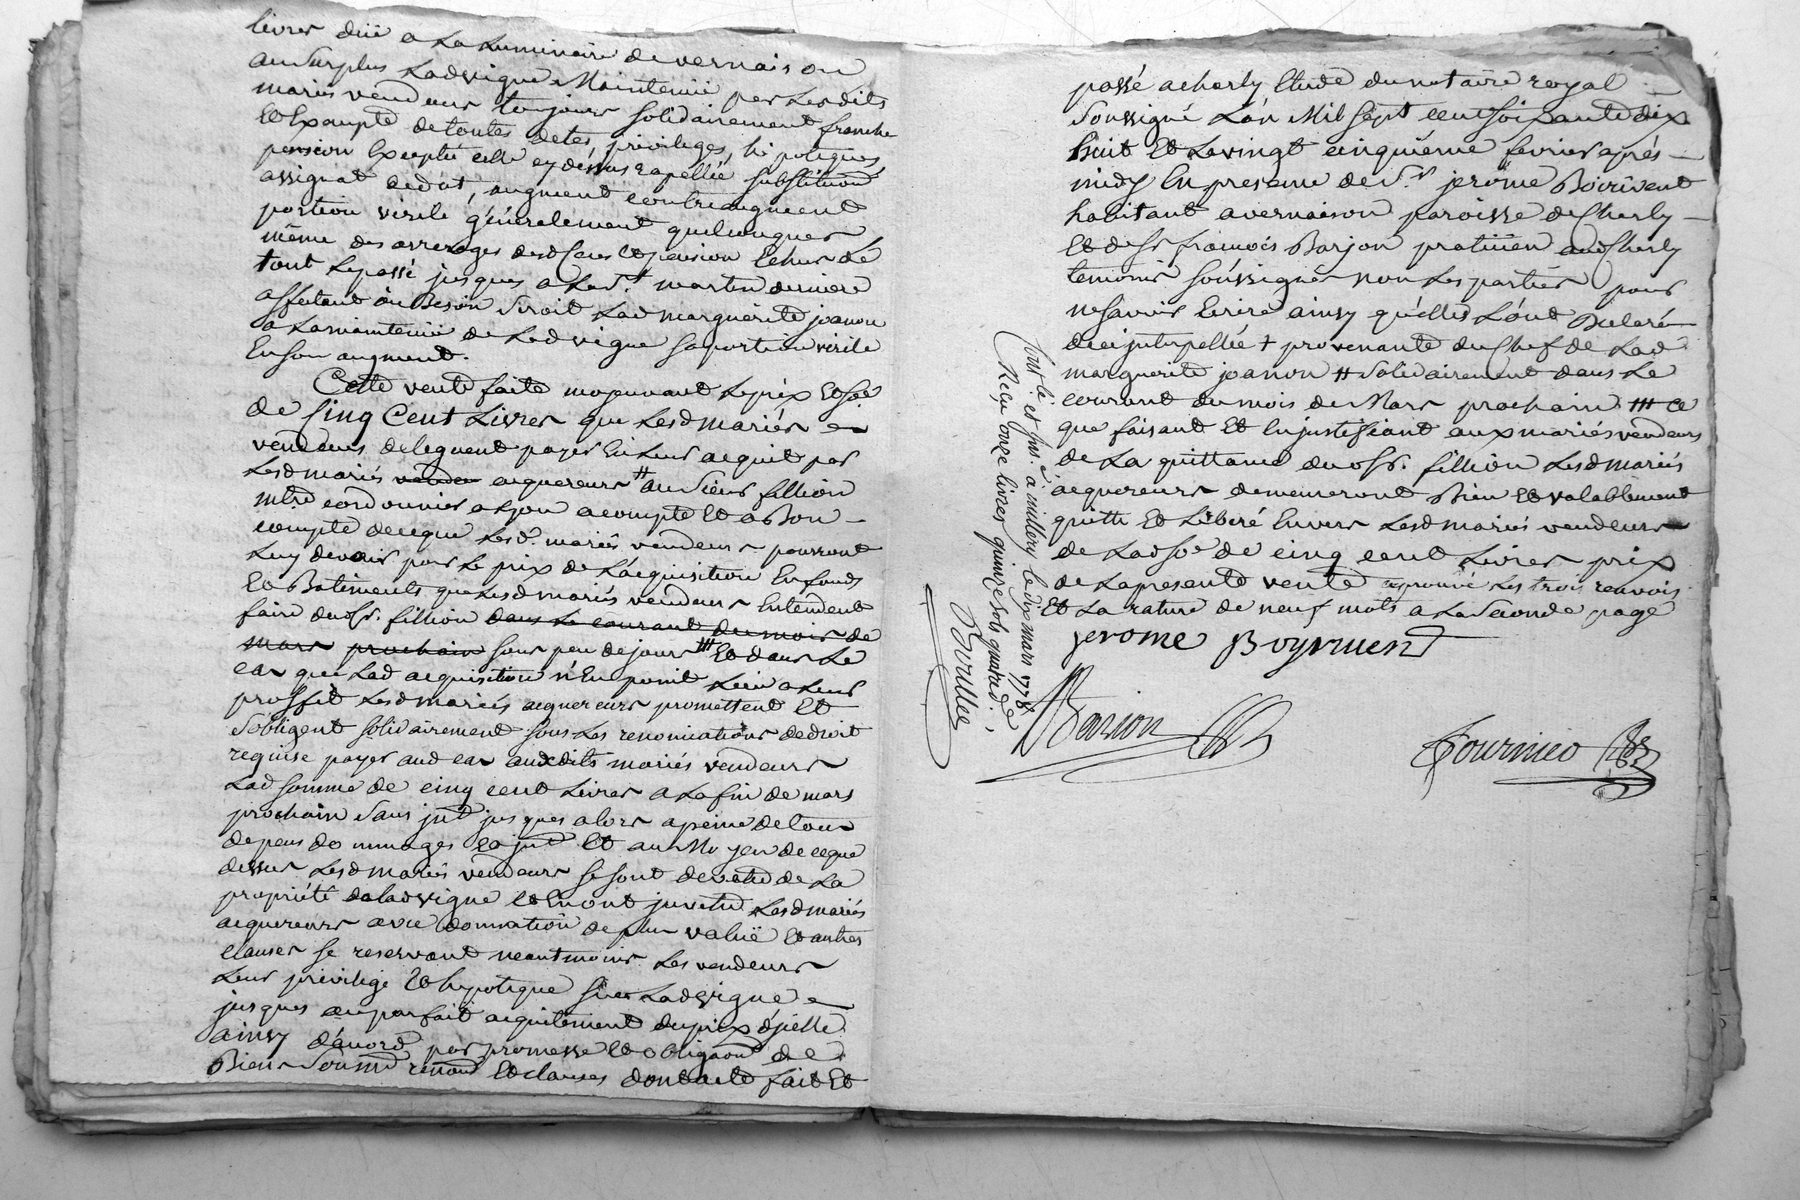 livres düe a La Luminaire de vernaison
au surplus Ladvigne Maintenüe par Lesdits
mariés vendeurs toujours solidairement franche
Et Exempte de toutes detes, privileges, hipoteques
pension Exceptée celle cy dessus rapellée, substitution
assignat dedot, augment contreaugment
portion virile généralement quelconques
même des arrerages desd Cens et pension Echus de
tout Lepassé jusques a La St martin derniere
affectant au Besoin Seroit Lad marguerite joanon
a La maintenüe de Ladvigne saportion virile
En son augment.
Cette vente faite moyenant Leprix Et Soe
de Cinq Cent Livres que Lesdmariés
vendeurs deleguent payer En Leur acquit par
Lesdmariés vendeu acquereurs # au Sieur fillion
mtre cordonnier a Lyon acompte Et a Bon
compte de ceque Lesd. mariés vendeurs pourront
Luy devoir pour Le prix de L'acquisition En fonds
Et Batiments que Lesdmariés vendeurs Entendent
faire dudSr. fillion dans Le courant du mois de
mars prochain sous peu dejours ### Et dans Le
cas que Lad acquisition n'Eu point Lieu a Leur
proffit Lesdmariés acquereurs promettent Et
s'obligent solidairement sous Les renonciations dedroit
requise payer aud cas auxdits mariés vendeurs
Lad somme de cinq cent Livres a La fin de mars
prochain Sans jnt jusques alors apeine de tous
depens dommages Et jnt Et au Moyen de ceque
dessus Lesdmariés vendeurs se sont devetu de La
propriété de Ladvigne Et En ont juvetu Lesdmariés
acquereurs avec donnation de plus valüe Et autres
clauses se reservant neantmoins Les vendeurs
Leur privilege Et hypoteque sur Ladvigne
jusques au parfait acquitement du prix d'jcelle
ainsy d'acord par promesse Et obligaon de
Biens Soumd renond Et clauses dont acte fait Et
passé acharly Etude du notaire royal
Soussigné L'an Mil sept cent soixante dix
huit Et Le vingt cinquième fevrier aprés
midy En presence de Sr. jerôme Boirivent
habitant a vernaison paroisse de Charly
Et de Sr françois Barjon praticien aud Charly
temoins soussignés non Les parties pour
ne savoir Ecrire ainsy qu'elles L'ont Declaré
de ce jnterpellée + provenante du Chef de Lad
marguerite joanon # Solidairement dans Le
courant du mois de Mars prochain ### ce
que faisant Et En justifiant aux mariés vendeurs
de La quittance dudSr. fillion Lesdmariés
acquereurs demeureront Bien Et valablement
quitte Et Liberé Envers Lesdmariés vendeurs
de Ladsoe de cinq cent Livres prix
de La presente vente approuvé Les trois renvois
Et La rature de neuf mots a La Seconde page
jerome Boyriuent
Barion
Fournier
Cont. lé et jns. à millery le dix mars 1778
Reçu onze livres quinze sols quatre d.